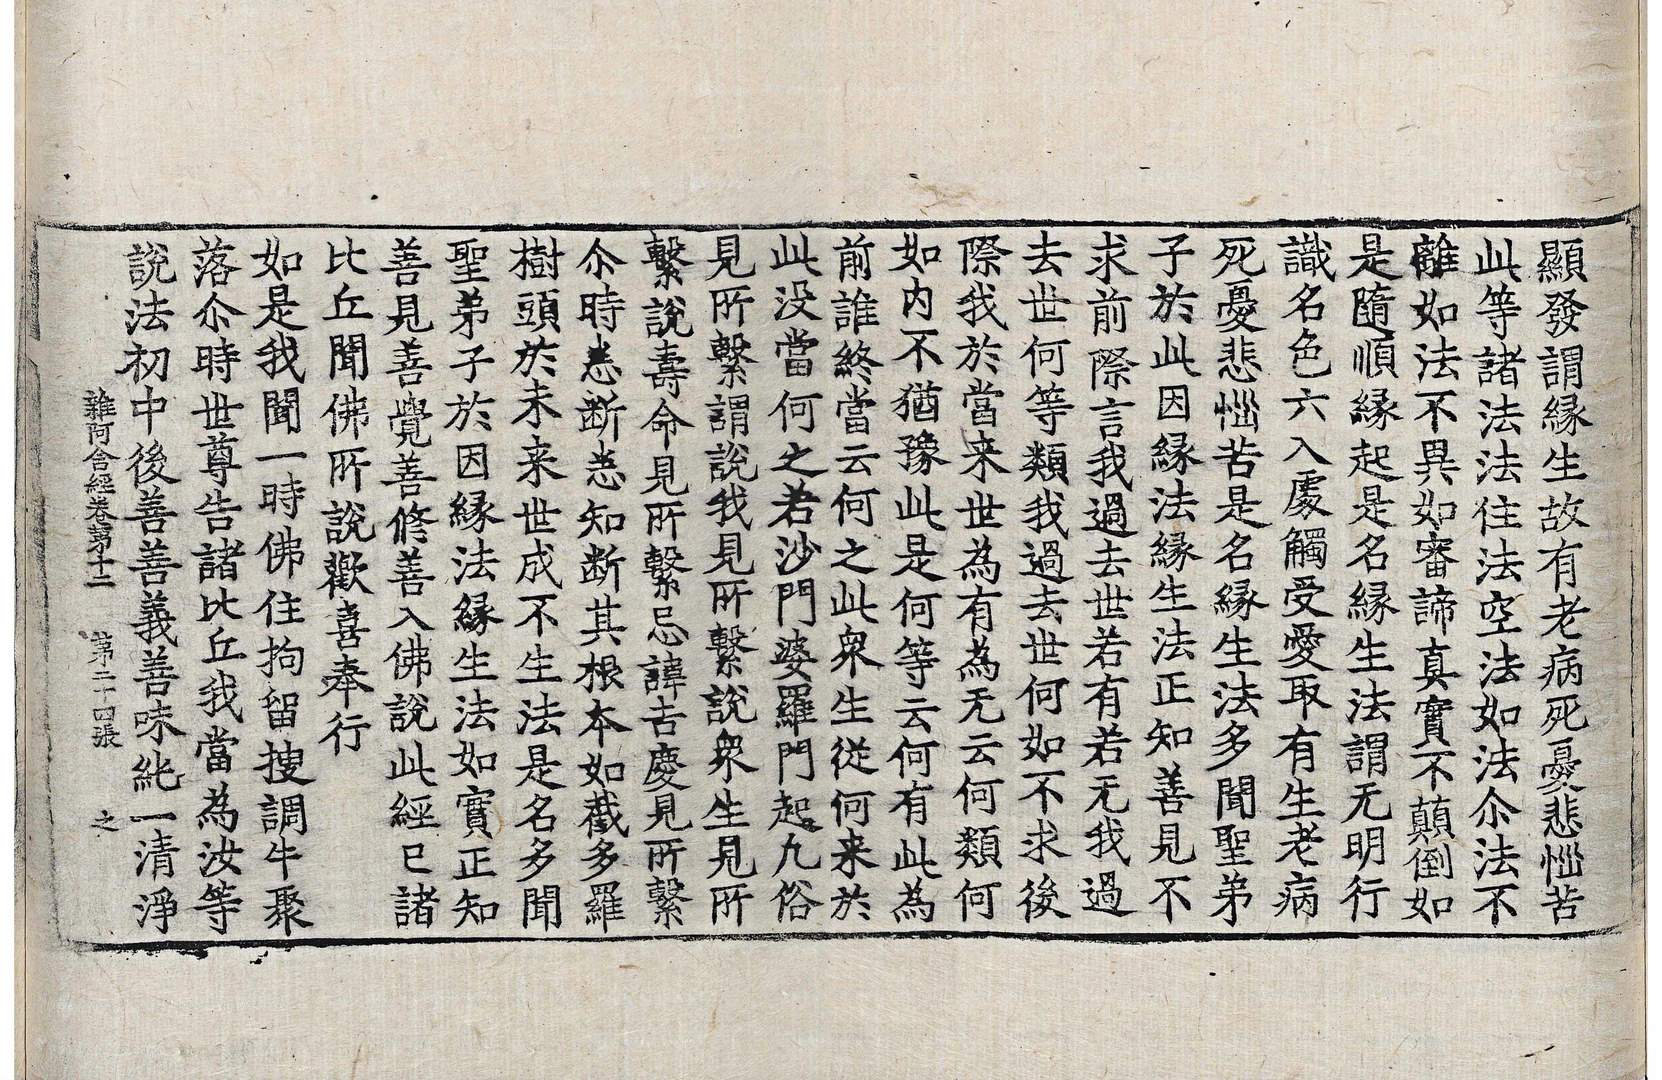 顯發謂縁生故有老病死憂悲惱苦
此等諸法法住法空法如法尒法不
離如法不異如審諦真實不顛倒如
是隨順縁起是名縁生法謂无明行
識名色六入處觸受愛取有生老病
死憂悲惱苦是名縁生法多聞聖弟
子於此因縁法縁生法正知善見不
求前際言我過去世若有若无我過
去世何等類我過去世何如不求後
際我於當来世為有為无云何類何
如内不猶豫此是何等云何有此為
前誰終當云何之此衆生從何来於
此没當何之若沙門婆羅門起九俗
見所繫謂說我見所繫說衆生見所
繫說壽命見所繫忌諱吉慶見所繫
尒時悉断悉知断其根本如截多羅
樹頭於未来世成不生法是名多聞
聖弟子於因縁法縁生法如實正知
善見善覺善修善入佛說此經已諸
比丘聞佛所說歡喜奉行
如是我聞一時佛住拘留搜調牛聚
落尒時世尊告諸比丘我當為汝等
說法初中後善善義善味純一清淨
雜阿含經卷第十二 第二十四張 之